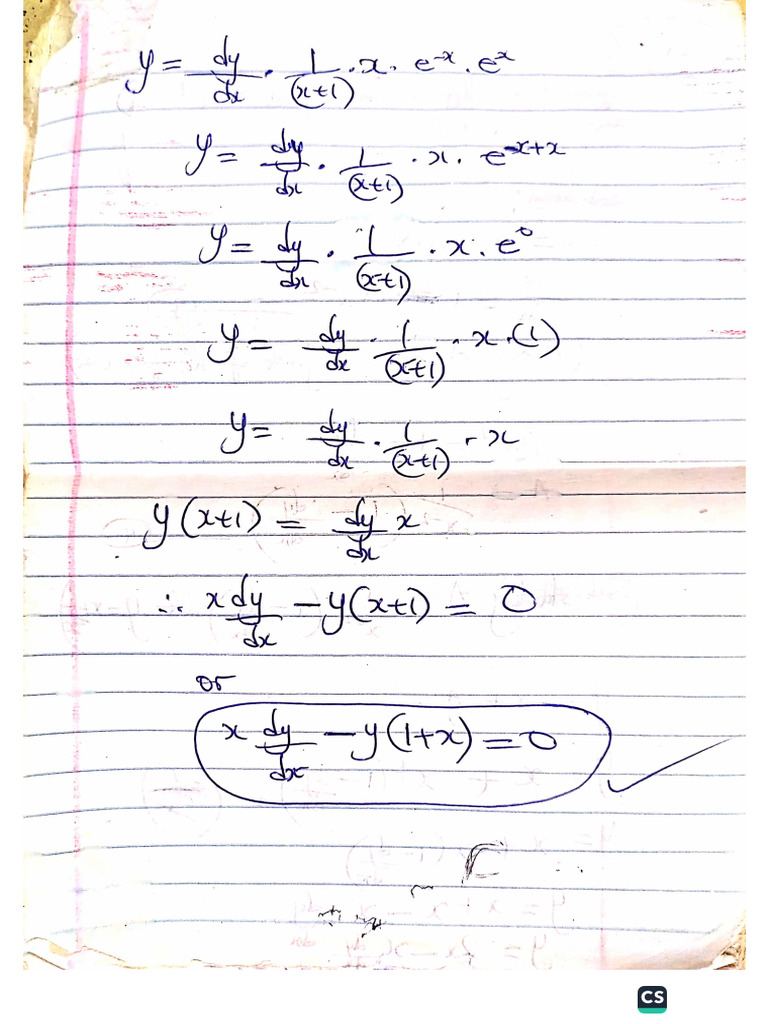 y = dy/dx · 1/(x+1) · x · e^-x · e^x
y = dy/dx · 1/(x+1) · x · e^-x+x
y = dy/dx · 1/(x+1) · x · e^0
y = dy/dx · 1/(x+1) · x · (1)
y = dy/dx · 1/(x+1) · x
y(x+1) = dy/dx x
∴ x dy/dx - y(x+1) = 0
or
x dy/dx - y(1+x) = 0
CS